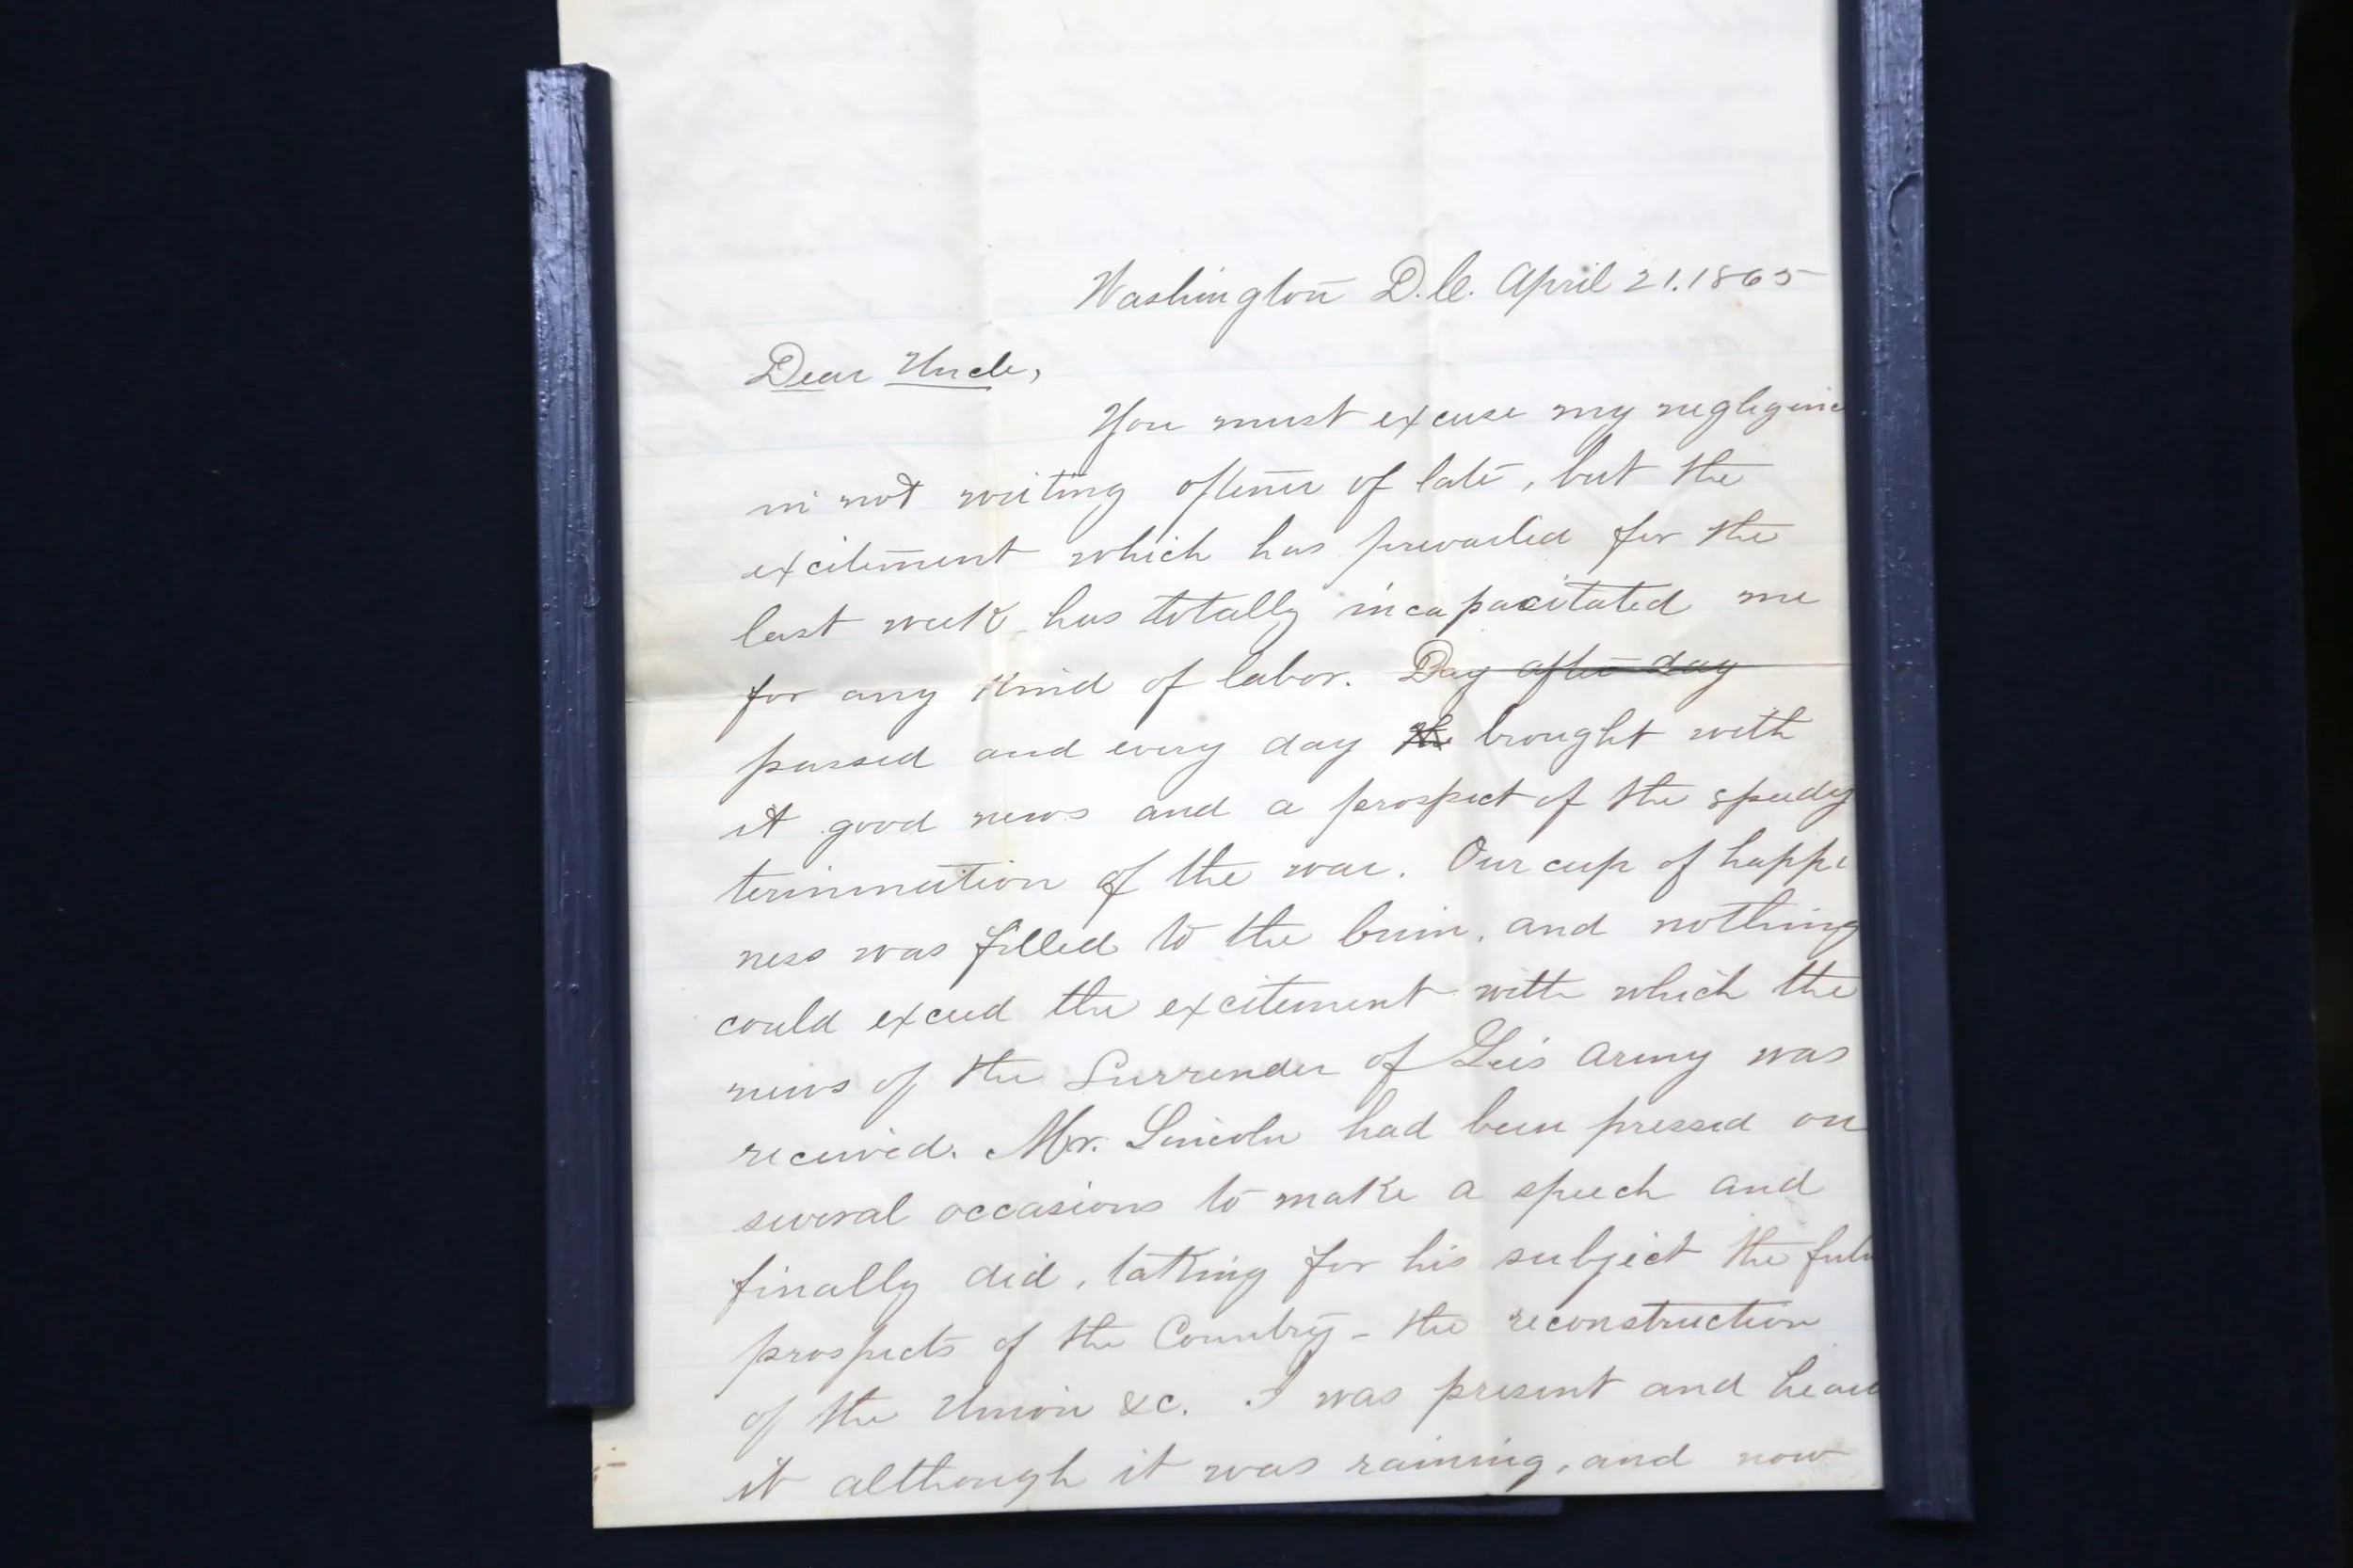 Washington D.C. April 21. 1865
Dear Uncle,
You must excuse my negligenc
in not writing oftener of late, but the
excitement which has prevailed for the
last week has totally incapacitated me
for any kind of labor. Day after day
passed and every day the brought with
it good news and a prospect of the speedy
termination of the war. Our cup of happi
ness was filled to the brim, and nothing
could exceed the excitement with which the
news of the Surrender of Lees Army was
received. Mr. Lincoln had been pressed on
several occasions to make a speech and
finally did, taking for his subject the futu
prospects of the Country - the reconstruction
of the Union &c. I was present and heard
it although it was raining, and now